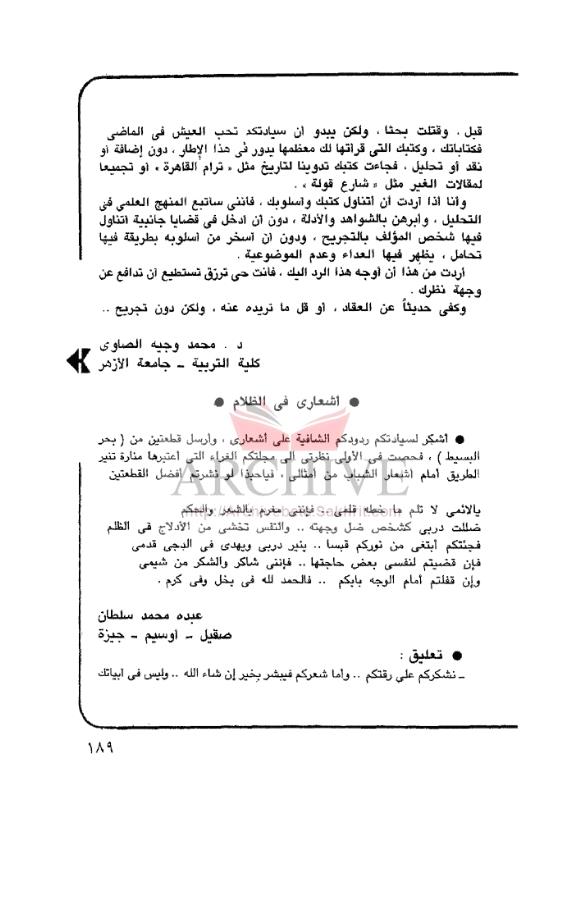 قبل ، وقتلت بحثا ، ولكن يبدو أن سيادتكم تحب العيش فى الماضى
فكتاباتك ، وكتبك التى قرأتها لك معظمها يدور فى هذا الإطار ، دون إضافة أو
نقد أو تحليل ، فجاءت كتبك تدوينا لتاريخ مثل « ترام القاهرة » أو تجميعا
لمقالات الغير مثل « شارع قولة » .
وأنا اذا أردت أن أتناول كتبك وأسلوبك ، فأننى ساتبع المنهج العلمى فى
التحليل ، وأبرهن بالشواهد والأدلة ، دون أن ادخل فى قضايا جانبية أتناول
فيها شخص المؤلف بالتجريح ، ودون أن أسخر من أسلوبه بطريقة فيها
تحامل ، يظهر فيها العداء وعدم الموضوعية .
أردت من هذا أن أوجه هذا الرد اليك ، فأنت حى ترزق تستطيع أن تدافع عن
وجهة نظرك .
وكفى حديثاً عن العقاد ، أو قل ما تريده عنه ، ولكن دون تجريح ..
د . محمد وجيه الصاوى
كلية التربية ــ جامعة الأزهر
● أشعارى فى الظلام ●
● أشكر لسيادتكم ردودكم الشافية على أشعارى ، وأرسل قطعتين من ( بحر
البسيط ) ، فحصت فى الأولى نظرتى الى مجلتكم الغراء التى أعتبرها منارة تنير
الطريق أمام أشعار الشباب من أمثالى ، فياحبذا لو نشرتم أفضل القطعتين
يالائمى لا تلم ما خطه قلمى .. فإننى مغرم بالشعر والحكم
ضللت دربى كشخص ضل وجهته .. والنفس تخشى من الأدلاج فى الظلم
فجئتكم أبتغى من نوركم قبسا .. ينير دربى ويهدى فى الدجى قدمى
فإن قضيتم لنفسى بعض حاجتها .. فإننى شاكر والشكر من شيمى
وإن قفلتم أمام الوجه بابكم .. فالحمد لله فى بخل وفى كرم .
عبده محمد سلطان
صقيل ــ أوسيم ــ جيزة
● تعليق :
ــ نشكركم على رقتكم .. وأما شعركم فيبشر بخير إن شاء الله .. وليس فى أبياتك
١٨٩
ARCHIVE